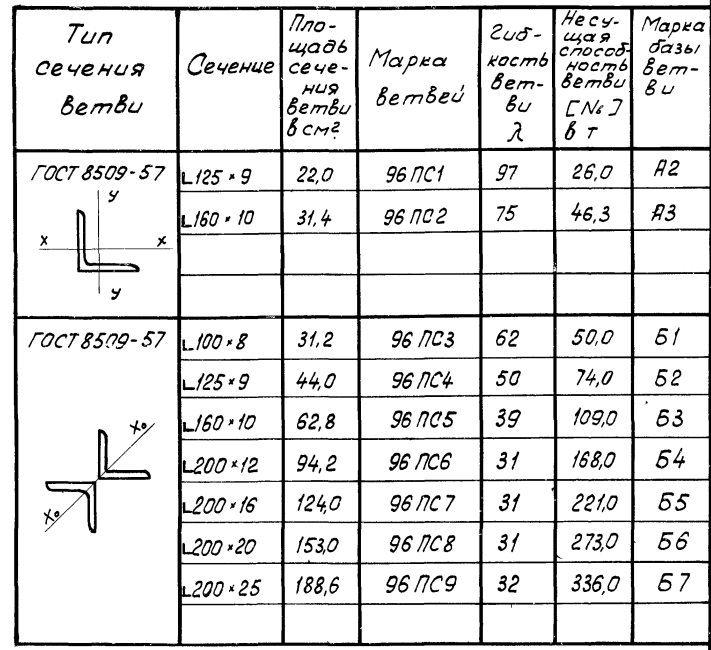 Тип сечения ветви | Сечение | Пло-щадь сече-ния ветви в см² | Марка ветвей | Гиб-кость вет-ви λ | Несу-щая способ-ность ветви [N₆] в т | Марка базы вет-ви
ГОСТ 8509-57 | ∟125×9 | 22,0 | 96 ПС1 | 97 | 26,0 | А2
∟160×10 | 31,4 | 96 ПС2 | 75 | 46,3 | А3
y
x x
y
ГОСТ 8509-57 | ∟100×8 | 31,2 | 96 ПС3 | 62 | 50,0 | Б1
∟125×9 | 44,0 | 96 ПС4 | 50 | 74,0 | Б2
∟160×10 | 62,8 | 96 ПС5 | 39 | 109,0 | Б3
∟200×12 | 94,2 | 96 ПС6 | 31 | 168,0 | Б4
∟200×16 | 124,0 | 96 ПС7 | 31 | 221,0 | Б5
∟200×20 | 153,0 | 96 ПС8 | 31 | 273,0 | Б6
∟200×25 | 188,6 | 96 ПС9 | 32 | 336,0 | Б7
x₀
x₀